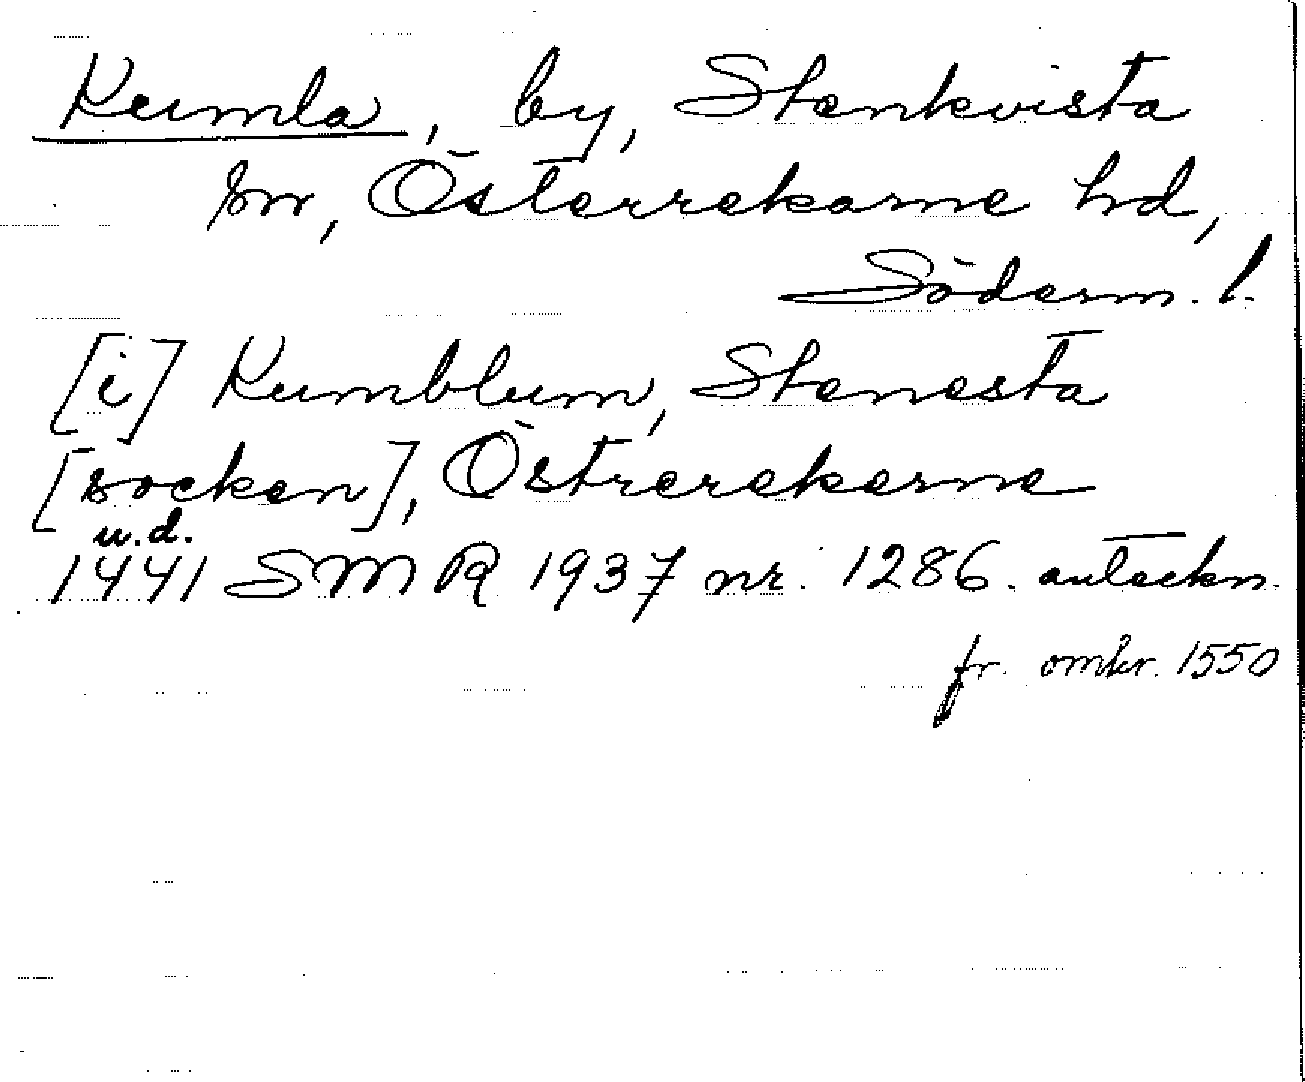 Kumla, by, Stenkvista
sn, Österrekarne hd,
Söderm. l.
[i] Kumblum, Stenesta
[socken], Östrerekerne
u.d.
1441 SMR 1937 nr. 1286. anteckn.
fr. omkr. 1550